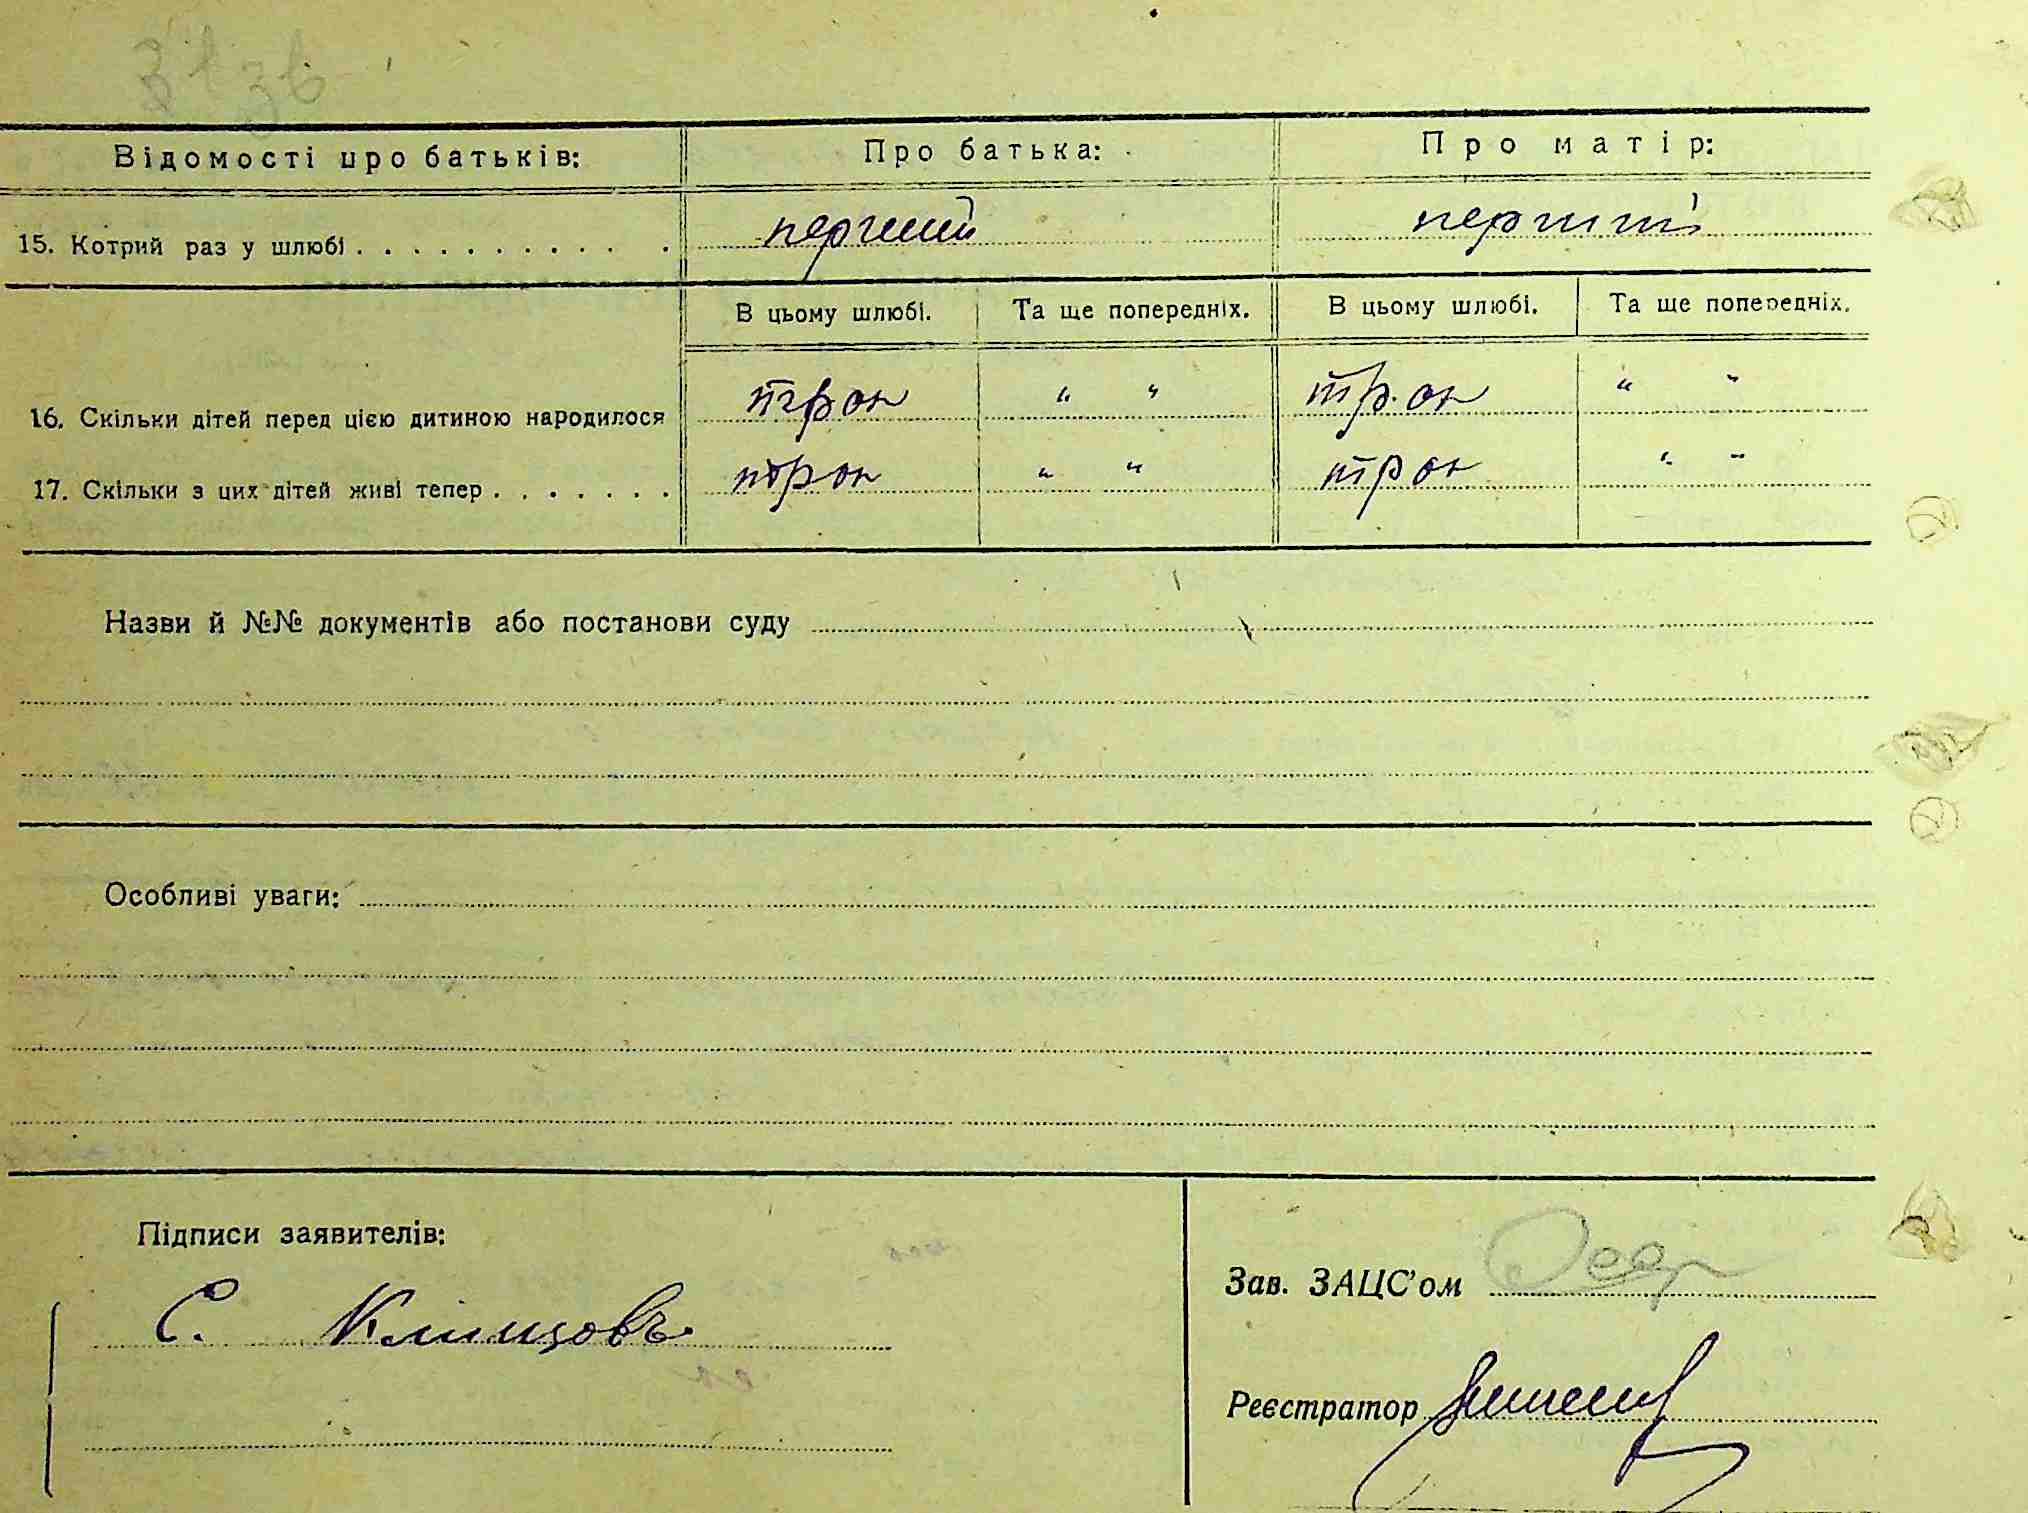 Відомості про батьків: Про батька: Про матір:
15. Котрий раз у шлюбі . . . . . . . . . . . . перший перший
В цьому шлюбі. Та ще попередніх. В цьому шлюбі. Та ще попередніх.
16. Скільки дітей перед цією дитиною народилося трое „ “ трое „ “
17. Скільки з цих дітей живі тепер . . . . . . . трое „ “ трое „ “
Назви й №№ документів або постанови суду
Особливі уваги:
Підписи заявителів:
Зав. ЗАЦС'ом
С. Клинцовъ
Реєстратор